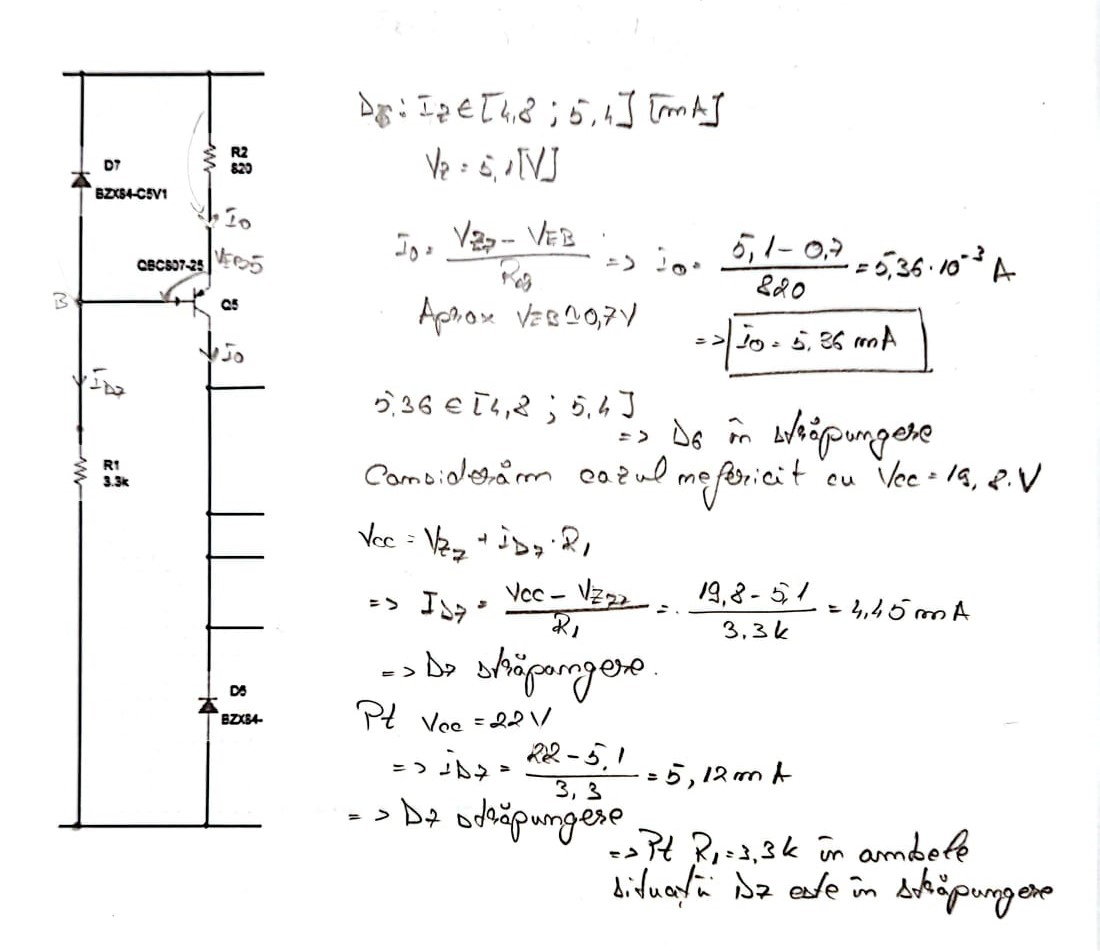 D7
BZX84-C5V1
R2
820
I0
QBC807-25
VEB5
B
Q5
I0
ID7
R1
3.3k
D6
BZX84-
D6: IZ ∈ [4,8 ; 5,4] [mA]
VZ = 5,1[V]
I0 = (VZ7 - VEB) / R2 => i0 = (5,1 - 0,7) / 820 = 5,36 · 10^-3 A
Aprox VEB ≃ 0,7V
=> i0 = 5,36 mA
5,36 ∈ [4,8 ; 5,4]
=> D6 în străpungere
Considerăm cazul nefericit cu Vcc = 19,8.V
Vcc = VZ7 + iD7 · R1
=> ID7 = (Vcc - VZ77) / R1 = (19,8 - 5,1) / 3.3k = 4,45 mA
=> D7 străpungere.
Pt Vcc = 22V
=> iD7 = (22 - 5,1) / 3,3 = 5,12 mA
=> D7 străpungere
=> Pt R1 = 3,3k în ambele
situații D7 este în străpungere